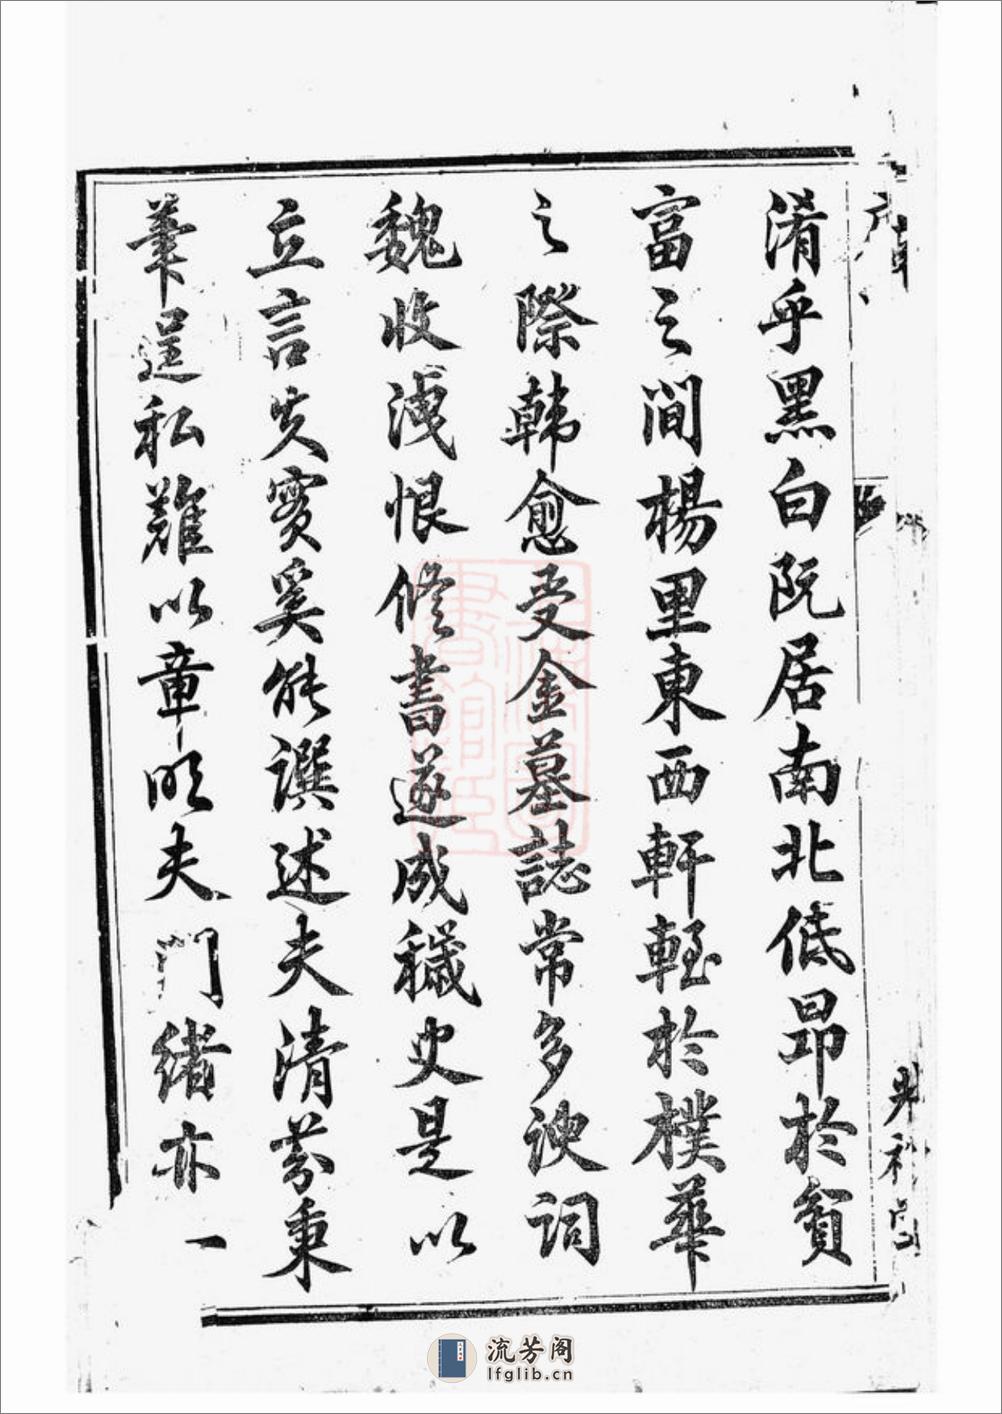 淆乎黑白阮居南北低昂於貧
富之間楊里東西軒輊於樸華
之際韓愈受金墓誌常多諛詞
魏收洩恨修書遂成穢史是以
立言失實奚能譔述夫清芬秉
筆逞私難以章明夫門緒亦一
流芳阁
lfglib.cn